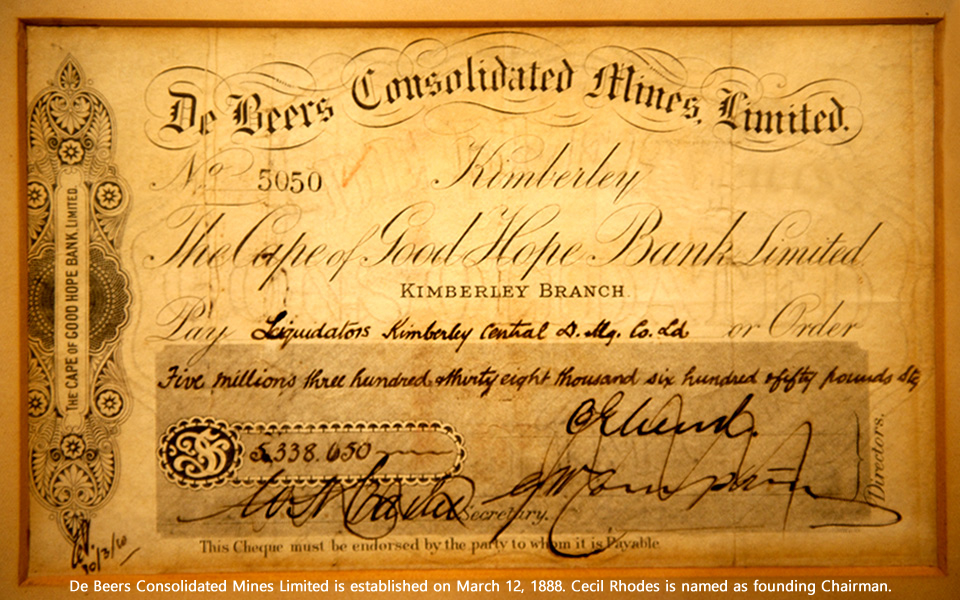 De Beers Consolidated Mines, Limited.
No 5050 Kimberley
The Cape of Good Hope Bank Limited
KIMBERLEY BRANCH.
Pay Liquidators Kimberley Central D. Mg. Co. Ld or Order
Five millions three hundred & thirty eight thousand six hundred & fifty pounds Stg
5,338.650
Directors.
Secretary.
This Cheque must be endorsed by the party to whom it is Payable.
THE CAPE OF GOOD HOPE BANK, LIMITED.
De Beers Consolidated Mines Limited is established on March 12, 1888. Cecil Rhodes is named as founding Chairman.